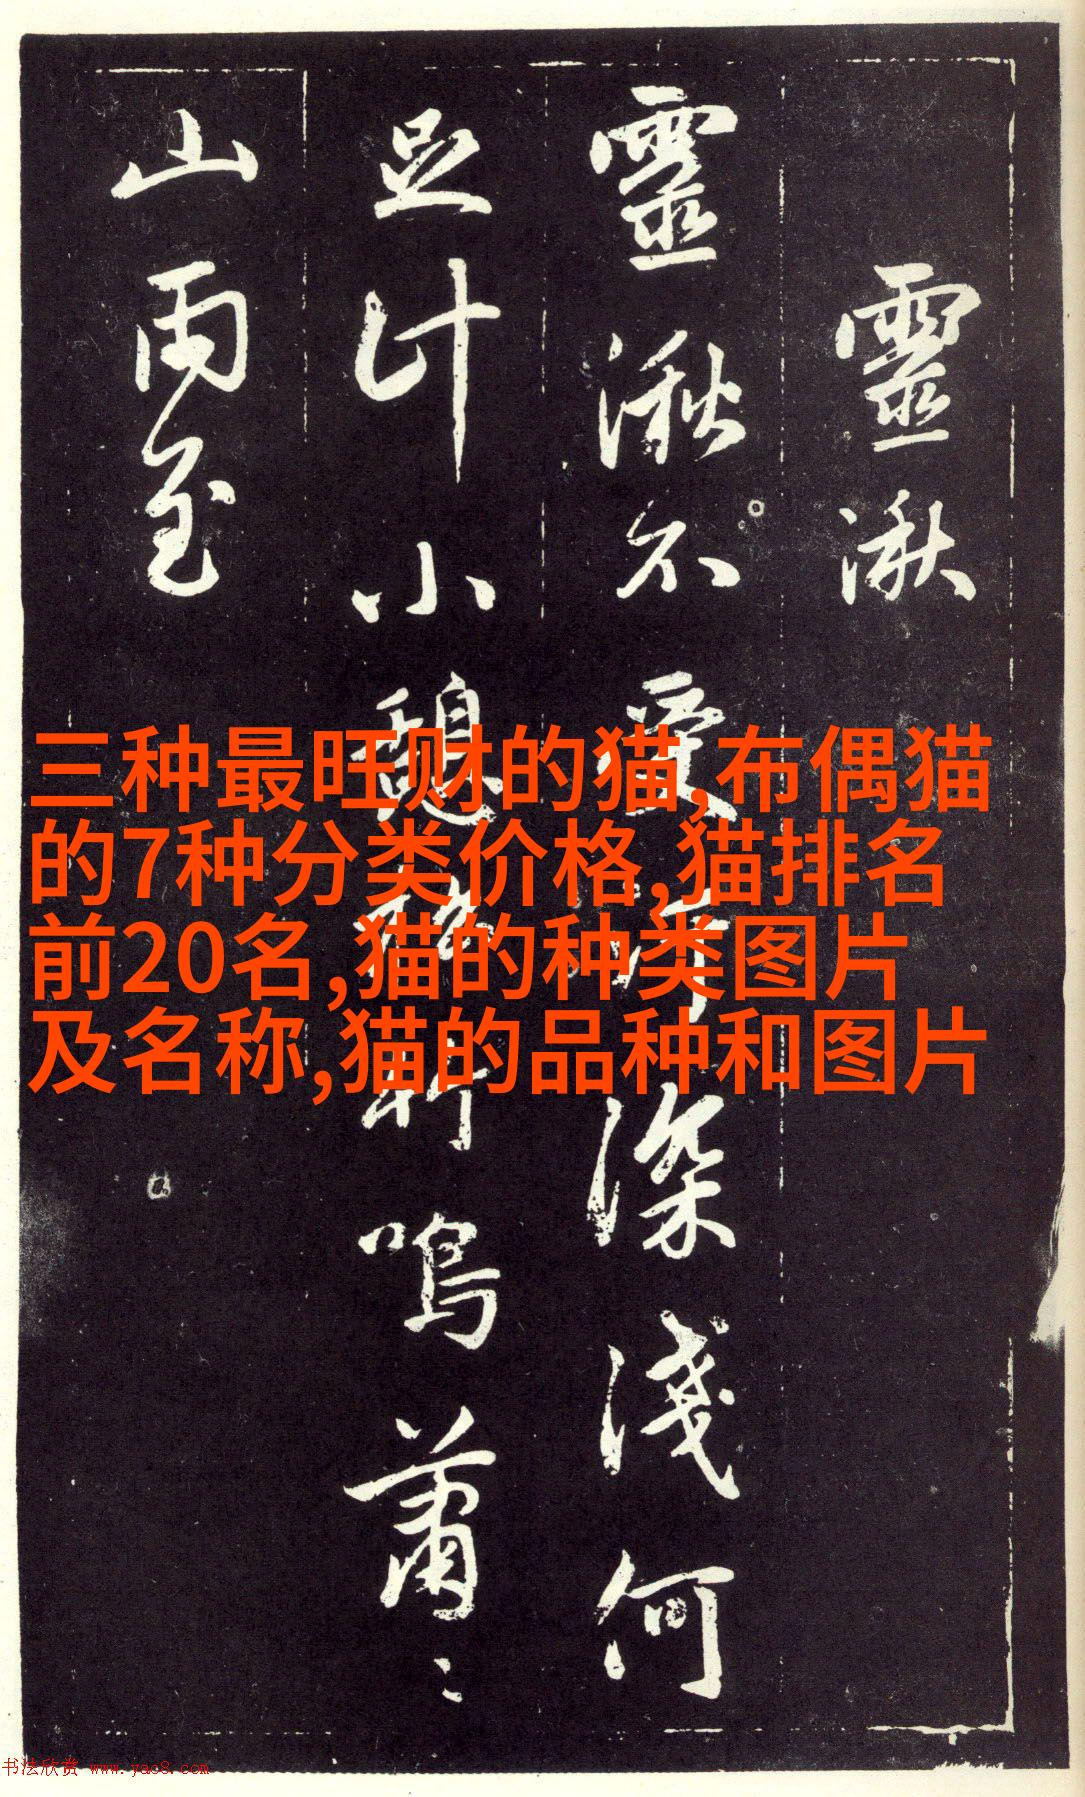 靈湫
靈湫不受汙深淺何
足计小憩楼轩鳴蕭〻
山雨至
三种最旺财的猫,布偶猫
的7种分类价格,猫排名
前20名,猫的种类图片
及名称,猫的品种和图片
书法欣赏 www.yac8.com